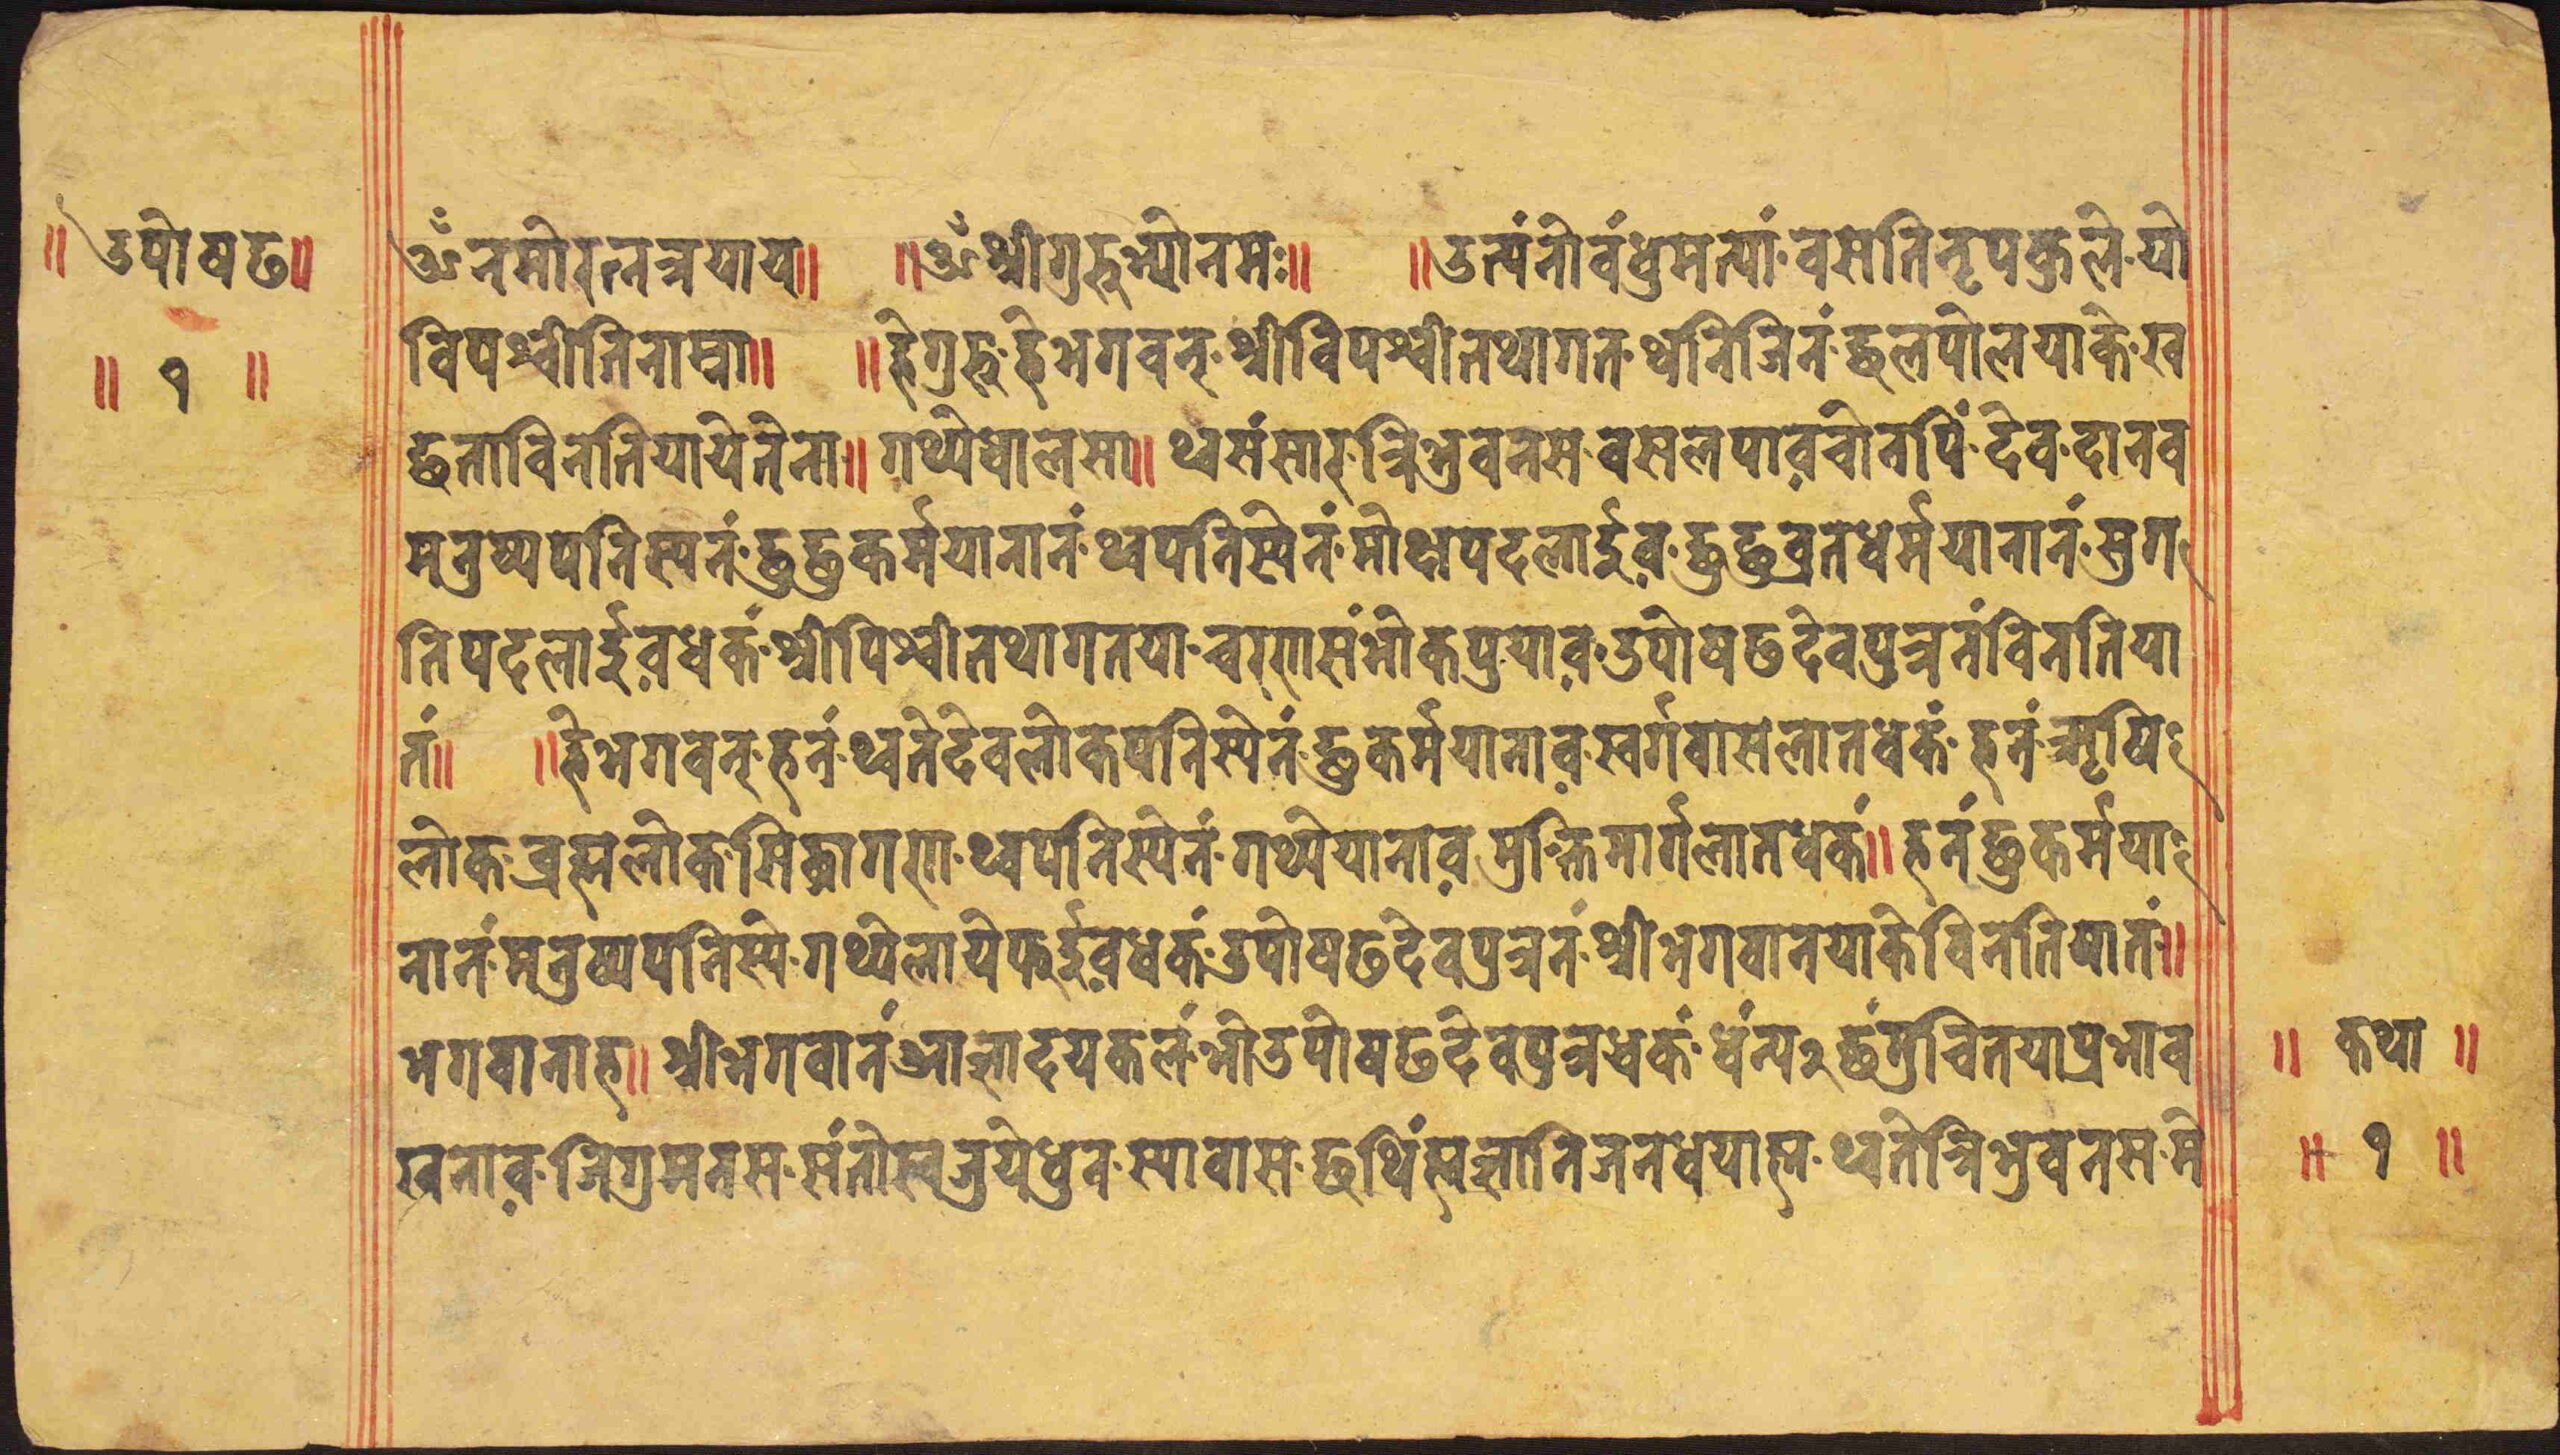 ॥ उपोषढ॥
॥ १ ॥
ॐ नमो रत्नत्रयाय॥ ॥ॐ श्रीगुरुभ्यो नमः॥ ॥उत्पंनो वंधुमत्यां वसति नृपकुले यो
विपश्चीति नाम्ना॥ ॥हे गुरु हे भगवन् श्रीविपश्ची तथागत थनि जिनं छलपोलयाके ख
छता विनति याये तेना॥ गथ्ये धालसा॥ थ्व संसार त्रिभुवनस वसलपाव चोनपिं देव दानव
मनुष्यपनिस्यनं छु छु कर्म यानानं थ्वपनिस्येनं मोक्षपद लाईव छु छु व्रत धर्म यानानं सुग
तिपद लाईव धकं श्रीपिश्ची तथागतया चरणसं भोकपुयाव उपोषढ देवपुत्रनं विनति या
तं॥ ॥हे भगवन् हनं थ्वते देवलोकपनिस्येनं छु कर्म यानाव स्वर्गवास लात धकं हनं ऋषि
लोक ब्रह्मलोक सिद्धागण थ्वपनिस्येनं गथ्ये यानाव मुक्तिमार्ग लात धकं॥ हनं छु कर्म या
नानं मनुष्यपनिस्ये गथ्ये लाये फईव धकं उपोषढ देवपुत्रनं श्रीभगवानयाके विनति यातं॥
भगवानाह॥ श्रीभगवानं आज्ञा दयकलं भो उपोषढ देवपुत्र धकं धंन्य२ छंगु चितया प्रभाव
खनाव जिगु मनस संतोख जुये धुन स्यावास छ थिंह्म ज्ञानि जन धयाह्म थ्वते त्रिभुवनस म
॥ कथा ॥
॥ १ ॥